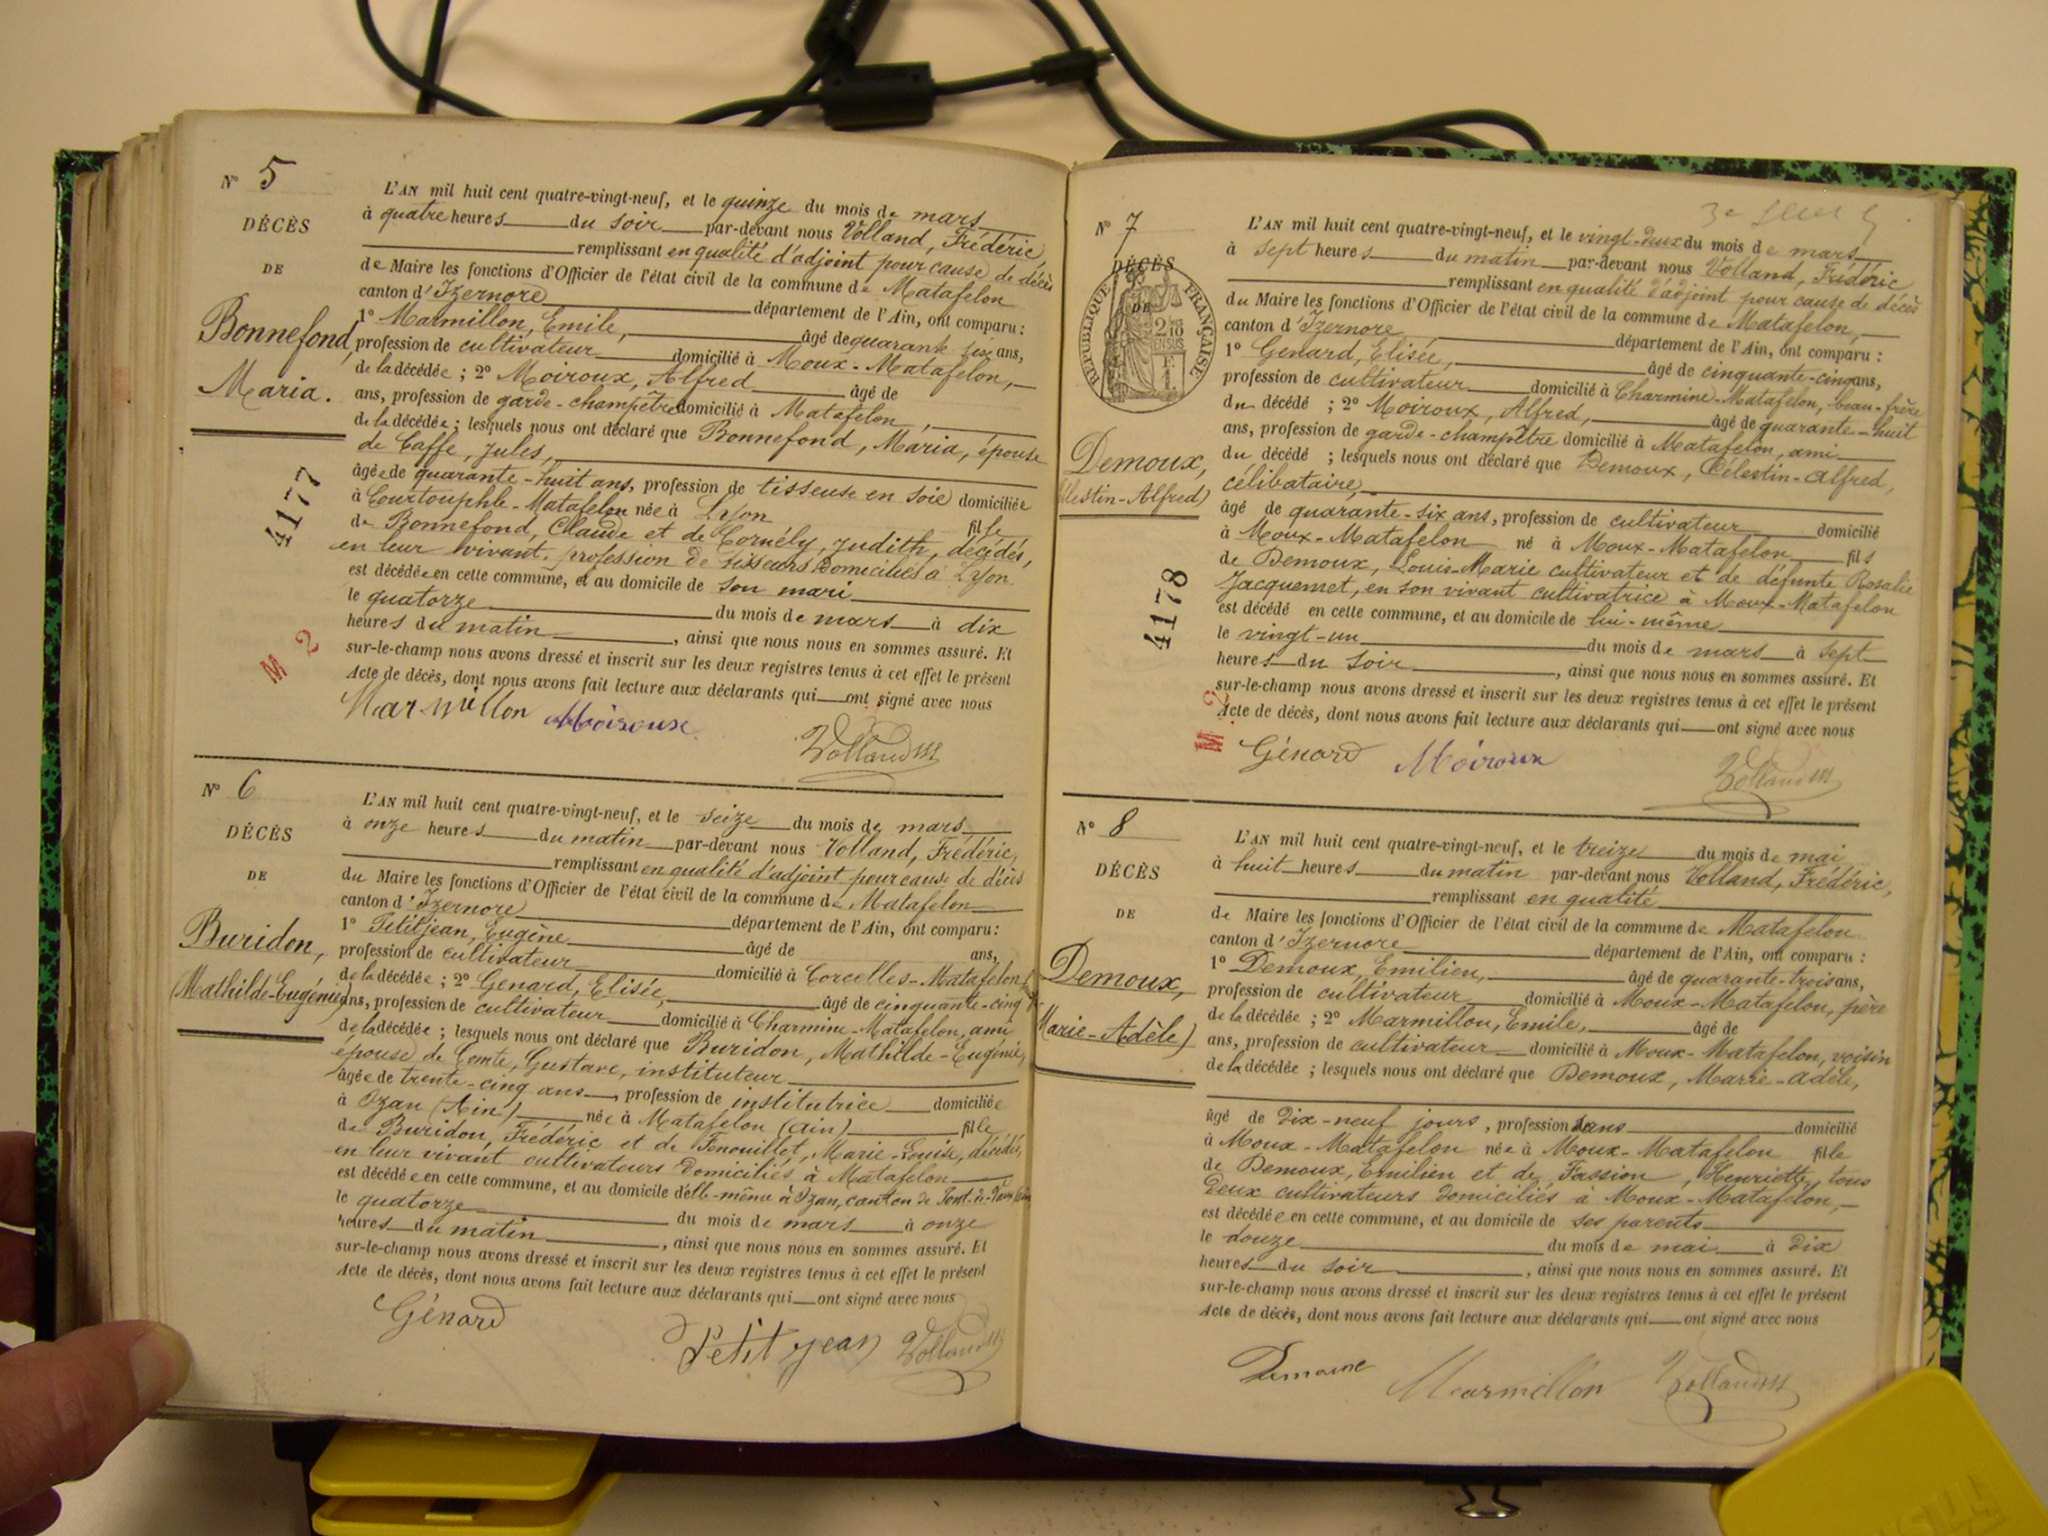 N° 5
DÉCÈS
DE
Bonnefond,
Maria.
4177
M 2
L'AN mil huit cent quatre-vingt-neuf, et le quinze du mois de mars
à quatre heures du soir par-devant nous Volland, Frédéric,
remplissant en qualité d'adjoint pour cause de décès
de Maire les fonctions d'Officier de l'état civil de la commune de Matafelon
canton d'Izernore département de l'Ain, ont comparu :
1° Marmillon, Emile, âgé de quarante-six ans,
profession de cultivateur domicilié à Moux-Matafelon,
de la décédée ; 2° Moiroux, Alfred âgé de
ans, profession de garde-champêtre domicilié à Matafelon,
de la décédée ; lesquels nous ont déclaré que Bonnefond, Maria, épouse
de Caffe, Jules,
âgée de quarante-huit ans, profession de tisseuse en soie domiciliée
à Courtouphle-Matafelon née à Lyon fille
de Bonnefond, Claude et de Cornély, Judith, décédés,
en leur vivant, profession de tisseurs domiciliés à Lyon
est décédée en cette commune, et au domicile de son mari
le quatorze du mois de mars à dix
heures du matin, ainsi que nous nous en sommes assuré. Et
sur-le-champ nous avons dressé et inscrit sur les deux registres tenus à cet effet le présent
Acte de décès, dont nous avons fait lecture aux déclarants qui ont signé avec nous
Marmillon Moiroux Volland
N° 6
DÉCÈS
DE
Buridon,
(Mathilde-Eugénie)
L'AN mil huit cent quatre-vingt-neuf, et le seize du mois de mars
à onze heures du matin par-devant nous Volland, Frédéric,
remplissant en qualité d'adjoint pour cause de décès
du Maire les fonctions d'Officier de l'état civil de la commune de Matafelon
canton d'Izernore département de l'Ain, ont comparu :
1° Petitjean, Eugène âgé de ans,
profession de cultivateur domicilié à Corcelles-Matafelon
de la décédée ; 2° Genard, Elisée, âgé de cinquante-cinq
ans, profession de cultivateur domicilié à Charmine-Matafelon, ami
de la décédée ; lesquels nous ont déclaré que Buridon, Mathilde-Eugénie,
épouse de Comte, Gustave, instituteur
âgée de trente-cinq ans, profession de institutrice domiciliée
à Ozan (Ain) née à Matafelon (ain) fille
de Buridon, Frédéric et de Fenouillet, Marie-Louise, décédés,
en leur vivant cultivateurs domiciliés à Matafelon
est décédée en cette commune, et au domicile d'elle-même à Ozan, canton de Pont-de-Vaux
le quatorze du mois de mars à onze
heures du matin, ainsi que nous nous en sommes assuré. Et
sur-le-champ nous avons dressé et inscrit sur les deux registres tenus à cet effet le présent
Acte de décès, dont nous avons fait lecture aux déclarants qui ont signé avec nous
Génard Petitjean Volland
N° 7
DÉCÈS
DE
RÉPUBLIQUE FRANÇAISE
Demoux,
Célestin-Alfred)
4178
M 2
L'AN mil huit cent quatre-vingt-neuf, et le vingt-deux du mois de mars
à sept heures du matin par-devant nous Volland, Frédéric
remplissant en qualité d'adjoint pour cause de décès
du Maire les fonctions d'Officier de l'état civil de la commune de Matafelon,
canton d'Izernore département de l'Ain, ont comparu :
1° Genard, Elisée, âgé de cinquante-cinq ans,
profession de cultivateur domicilié à Charmine-Matafelon, beau-frère
du décédé ; 2° Moiroux, Alfred, âgé de quarante-huit
ans, profession de garde-champêtre domicilié à Matafelon, ami
du décédé ; lesquels nous ont déclaré que Demoux, Célestin-Alfred,
célibataire,
âgé de quarante-six ans, profession de cultivateur domicilié
à Moux-Matafelon né à Moux-Matafelon fils
de Demoux, Louis-Marie cultivateur et de défunte Rosalie
Jacquemet, en son vivant cultivatrice à Moux-Matafelon
est décédé en cette commune, et au domicile de lui-même
le vingt-un du mois de mars à sept
heures du soir, ainsi que nous nous en sommes assuré. Et
sur-le-champ nous avons dressé et inscrit sur les deux registres tenus à cet effet le présent
Acte de décès, dont nous avons fait lecture aux déclarants qui ont signé avec nous
Génard Moiroux Volland
N° 8
DÉCÈS
DE
Demoux,
Marie-Adèle)
L'AN mil huit cent quatre-vingt-neuf, et le treize du mois de mai
à huit heures du matin par-devant nous Volland, Frédéric,
remplissant en qualité
de Maire les fonctions d'Officier de l'état civil de la commune de Matafelon
canton d'Izernore département de l'Ain, ont comparu :
1° Demoux, Emilien, âgé de quarante-trois ans,
profession de cultivateur domicilié à Moux-Matafelon, père
de la décédée ; 2° Marmillon, Emile, âgé de
ans, profession de cultivateur domicilié à Moux-Matafelon, voisin
de la décédée ; lesquels nous ont déclaré que Demoux, Marie-Adèle,
âgé de dix-neuf jours, profession sans domicilié
à Moux-Matafelon née à Moux-Matafelon fille
de Demoux, Emilien et de Fassion, Henriette, tous
deux cultivateurs domiciliés à Moux-Matafelon,
est décédée en cette commune, et au domicile de ses parents
le douze du mois de mai à dix
heures du soir, ainsi que nous nous en sommes assuré. Et
sur-le-champ nous avons dressé et inscrit sur les deux registres tenus à cet effet le présent
Acte de décès, dont nous avons fait lecture aux déclarants qui ont signé avec nous
Demoux Marmillon Volland